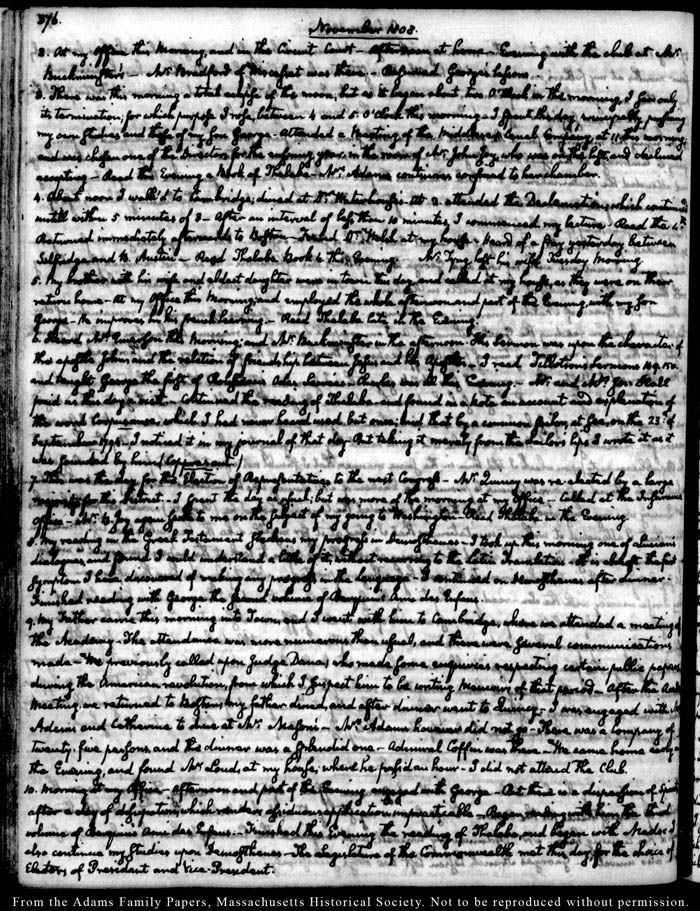 376.
November 1808.
2. At my Office this Morning, and in the Circuit Court – Afternoon at home – Evening with the club at Mr.
Buckminster's – Mr. Bradford of Wiscasset was there –
3. There was this morning a total eclipse of the moon, but as it began about two O'Clock in the morning, I saw only
its termination; for which purpose I rose, between 4 and 5 O'Clock this morning – I spent this day, principally pursuing
my own studies and those of my Son George – Attended a Meeting of the Middlesex Canal Company, at 11 this morning
and was chosen one of the Directors for the ensuing year, in the room of Mr. John Joy, who was on the list, and declined
accepting – Read this Evening a Book of Thalaba – Mrs. Adams continues confined to her chamber.
4. About noon I walk'd to Cambridge; dined at Dr. Waterhouse's – At 2. attended the Declamations, which continued
untill within 5 minutes of 3 – After an interval of less than 10 minutes, I commenced my lecture – Read the
Returned immediately afterwards to Boston – Found Dr. Welsh at my house – Heard of a fray yesterday between
Selfridge and Austin – Read Thalaba Book 6 this Evening. Mr. Tyng left his wife Tuesday Morning
5. My brother with his wife and eldest daughter were in town this day and called at my house, as they were on their
return home – At my Office this Morning; and employed the whole afternoon and part of the Evening, with my Son
George – He improves in his french learning – Read Thalaba late in the Evening.
6. Heard Mr. Emerson this Morning; and Mr. Buckminster in the afternoon – His Sermon was upon the character of
the apostle John, and the relation of friendship between Jesus and the Apostle – I read Tillotson's Sermons 149. 150.
and taught George the first of – Charles was ill this Evening – Mr. and Mrs. Jos. Hall
paid us this day a visit – Continued the reading of Thalaba and found in a Note an account and explanation of
the word, which I had never heard used but once; and that by a common sailor, at Sea, on the 23d. of
September 1794. I noticed it in my journal of that day – But taking it merely from the sailor's lips I wrote it as it
was sounded by him
7. This was the day for the Election of Representatives to the next Congress – Mr. Quincy was re-elected by a large
majority for this district – I spent the day as usual; but was more of the morning at my Office – Called at the Insurance
Office – Mr. Joy again spoke to me on the subject of my going to Washington – Read Thalaba in the Evening
8. My reading in the Greek Testament my progress in Demosthenes – I took up this morning one of Lucian's
dialogues, and found I could understand a little of it, without recurring to the Latin Translation – It is almost the first
symptom I have discovered of making any progress in the language – I continued on Demosthenes after dinner –
Finished reading with George the second volume of Berquin's Ami des Enfans.
9. My Father came this morning into Town, and I went with him to Cambridge, where we attended a meeting of
the Academy – The attendance was more numerous than usual, and there were several communications
made – We previously called upon Judge Dana, who made some enquiries respecting certain public papers
during the American revolution, from which I suspect him to be writing Memoirs of that period – After the
Meeting, we returned to Boston; my father dined, and after dinner went to Quincy – I was engaged with
Adams and Catherine to dine at Mr. Mason's – Mrs. Adams however did not go – There was a company of
twenty, five persons, and the dinner was a splendid one – Admiral Coffin was there – We came home early in
the Evening, and found Mr. Loud, at my house; where he pass'd an hour – I did not attend the Club.
10. Morning at my Office – Afternoon and part of the Evening engaged with George – But there is a dispersion of
after a day of dissipation, which renders assiduous application impracticable – Began reading with him the third
volume of Berquin's Ami des Enfans – Finished this Evening the reading of Thalaba, and began with Madoc. I
also continue my studies upon Demosthenes – The Legislature of the Commonwealth met this day, for the choice of
Electors of President and Vice-President.
From the Adams Family Papers, Massachusetts Historical Society. Not to be reproduced without permission.